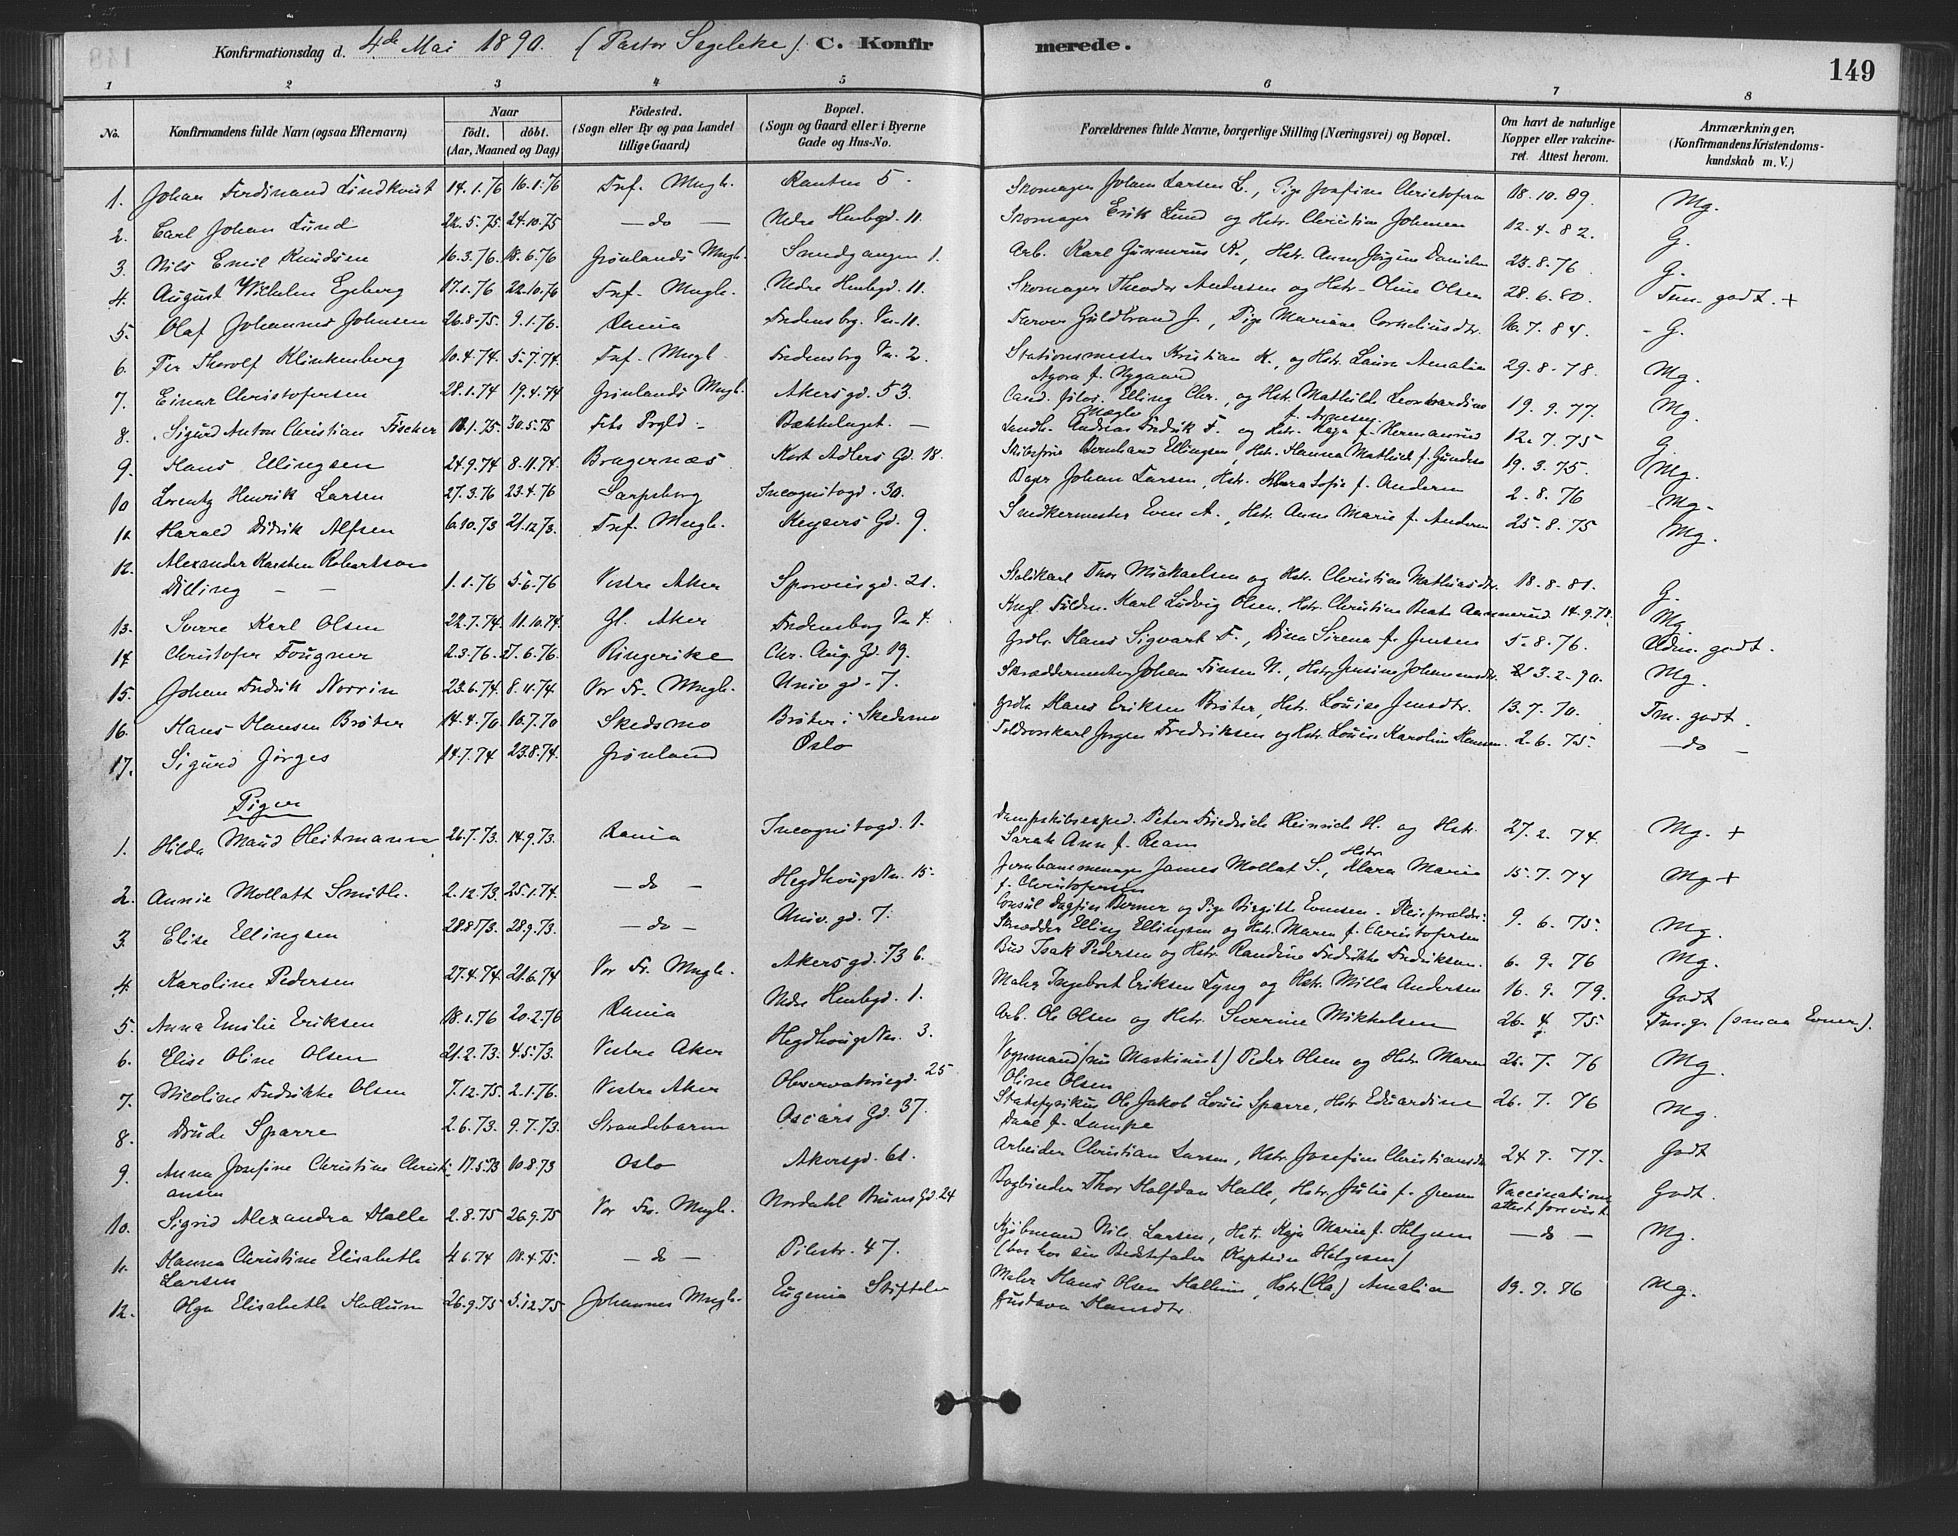 Konfirmationsdag d. 4de Mai 1890. (Pastor Segelcke). C. Konfirmerede. 149
1 2 3 4 5 6 7 8
No. Konfirmandens fulde Navn (ogsaa Efternavn) Naar født. døbt. (Aar, Maaned og Dag) Fødested. (Sogn eller By og paa Landet tillige Gaard) Bopæl. (Sogn og Gaard eller i Byerne Gade og Hus-No. Forældrenes fulde Navne, borgerlige Stilling (Næringsvei) og Bopæl. Om havt de naturlige Kopper eller vakcineret. Attest herom. Anmærkninger. (Konfirmandens Kristendomskundskab m. V.)
1. Johan Ferdinand Lindkvist 14.1.76 16.1.76 Tref. Mngh. 5 Skomager Johan Larsen L., Pige Josefine Christofersen 18.10.89. Mg.
2. Carl Johan Lund 22.5.75 24.10.75 — do — Nedre Hmbgd. 11. Skomager Erik Lund og Hstr. Christine Johnsen 12.4.82. G.
3. Nils Emil Knudsen 16.3.76. 18.6.76 Grønlands Mngh. Smedgangen 1. Arb. Karl Gunnerus K., Hstr. Anne Jørgine Danielsen 23.8.76. G.
4. August Wilhelm Egeberg 17.1.76 22.10.76 Tref. Mngh. Nedre Hmbgd. 11. Skomager Theodor Andersen og Hstr. Oline Olsen 28.6.80. Tm. godt. +
5. Olaf Johannes Johnsen 26.8.75. 9.1.76. Xania Fredensbg. Vn. 11. Farver Guldbrand J., Pige Mariane Corneliusdtr. 16.7.84. G.
6. Per Thorolf Klinkenberg 10.4.74. 5.7.74. Tref. Mngh. Fredensbrg Vn. 2. Stationsmester Kristian K., og Hstr. Laura Amalia
Agora f. Nygaard 29.8.78. Mg.
7. Einar Christofersen 28.1.74 19.4.74 Grønlands Mngh. Akersgd. 53. Cand. filos. Elling Chr., og Hstr. Mathilde Leonhardine
f. Arnesen 19.9.77. Mg.
8. Sigurd Anton Christian Fischer 11.1.75. 30.5.75 Bækkelaget. — Andreas Fredrik F. og Hstr. Kaja f. Hermansrud 12.7.75 G.
9. Hans Ellingsen 24.9.74 8.11.74. Bragernæs Kort Adlers Gd. 18. Skibsfører Bernhard Ellingsen, Hstr. Hanna Mathilde f. Gundersen 19.3.75. Mg.
10 Lorentz Henrik Larsen 27.3.76 23.4.76 Sarpsborg Incognitogd. 30. Bager Johan Larsen, Hstr. Klara Sofie f. Andersen 2.8.76 Mg.
11. Harald Didrik Alfsen 6.10.73 21.12.73. Tref. Mngh. Keysers Gd. 9. Snedkermester Even A., Hstr. Anne Marie f. Andersen 25.8.75 Mg.
12. Alexander Karsten Robertson
Dilling — — 1.1.76 5.6.76 Vestre Aker Sporveisgd. 21. Staldkarl Thor Mickaelsen og Hstr. Christine Mathiasdtr. 18.8.81. G.
13. Sverre Karl Olsen 22.7.74 11.10.74. Gl. Aker Fredensborg Vn 4. Kngl. Fuldm. Karl Ludvig Olsen, Hstr. Christine Beate Aamerud. 14.9.78. Mg.
14 Christofer Fougner 2.3.76. 5.6.76. Ringerike Chr. Aug. Gd. 19. Grdbr. Hans Sigvart F., Dina Sirena f. Jensen 5.8.76. Udm. godt.
15. Johan Fredrik Norrin 23.6.74. 8.11.74. Vor Fr. Mngh. Univ. gd. 7. Skræddermester Johan N., Hstr. Jensine Johannesdtr. 3.2.90. Mg.
16. Hans Hansen Brøter 14.4.70 10.7.70 Skedsmo Brøter i Skedsmo Grdbr. Hans Eriksen Brøter, Hstr. Louise Jensdtr. 13.7.70. Tm. godt.
17. Sigurd Jørges 14.7.74 23.8.74. Grønland Oslo Toldroerskarl Jørgen Fredriksen og Hstr. Louise Karoline Hansen. 2.6.75. — do —
Piger
1. Hilda Maud Heitmann 26.7.73. 14.9.73. Xania Incognitogd. 1. Dampskibsexped. Peter Friedrich Heinrich H. og Hstr.
Sarah Ann f. Ream 27.2.74. Mg. +
2. Annie Mollatt Smith. 2.12.73. 25.1.74. — do — HegdhaugsVn. 15. James Mollat S., Hstr. Klara Marie
f. Christofersen 15.7.74 Mg +
3. Elise Ellingsen 28.8.73. 28.9.73. — do — Univ. gd. 7. Consul Dagfin Berner og Pige Birgitte Evensen. Pleieforældre:
Skrædder Elling Ellingsen og Hstr. Maren f. Christofersen 9.6.75. Mg.
4. Karoline Pedersen 27.4.74 21.6.74 Vor Fr. Mngh. Akersgd. 73 b. Bud Isak Pedersen og Hstr. Randine Fredrikke Fredriksen. 6.9.76 Mg.
5. Anna Emilie Eriksen 18.1.76 20.2.76 Xania Nedre Hmbgd. 1. Maler Ingebret Eriksen Lyng og Hstr. Milla Andersen 16.9.79. Godt
6. Elise Oline Olsen 21.2.73. 4.5.73. Vestre Aker HegdhaugsVn. 3. Arb. Ole Olsen og Hstr. Severine Mikkelsen 26.4.75. Tm.g. (smaa Evner).
7. Nicoline Fredrikke Olsen 7.12.75. 2.1.76. Vestre Aker Observatoriegd. 25 Vognmand (nu Maskinist) Peder Olsen og Hstr. Maren
Oline Olsen 26.7.76 Mg.
8. Drude Sparre 2.6.73. 9.7.73. Strandebarm Oscars Gd. 37. Statsfysikus Ole Jakob Louis Sparre, Hstr. Eduardine
Daae f. Lampe 26.7.76 Mg.
9. Anna Josefine Christine Christi-
ansen 17.5.73 10.8.73 Oslo Akersgd. 61. Arbeider Christian Larsen, Hstr. Josefine Christiansdtr. 24.7.77. Godt
10. Sigrid Alexandra Halle 2.8.75 26.9.75 Vor Fr. Mngh. Nordahl Bruns Gd. 24 Bogbinder Thor Halfdan Halle, Hstr. Julie f. Jensen Vaccinations
attest forevist Godt.
11. Hanna Christine Elisabeth
Larsen 4.6.74 18.4.75. — do — Pilestr. 47. Kjøbmand Nils Larsen, Hstr. Kaja Marie f. Helgesen
(bor hos sin Bedstefader Kaptein Helgesen) — do — Mg.
12. Olga Elisabeth Hallum 26.9.75 5.12.75 Johannes Mngh. Eugenia Stiftelse Maler Hans Olsen Hallum, Hstr. Amalia
Gustava Hansdtr. 19.7.76 Mg.